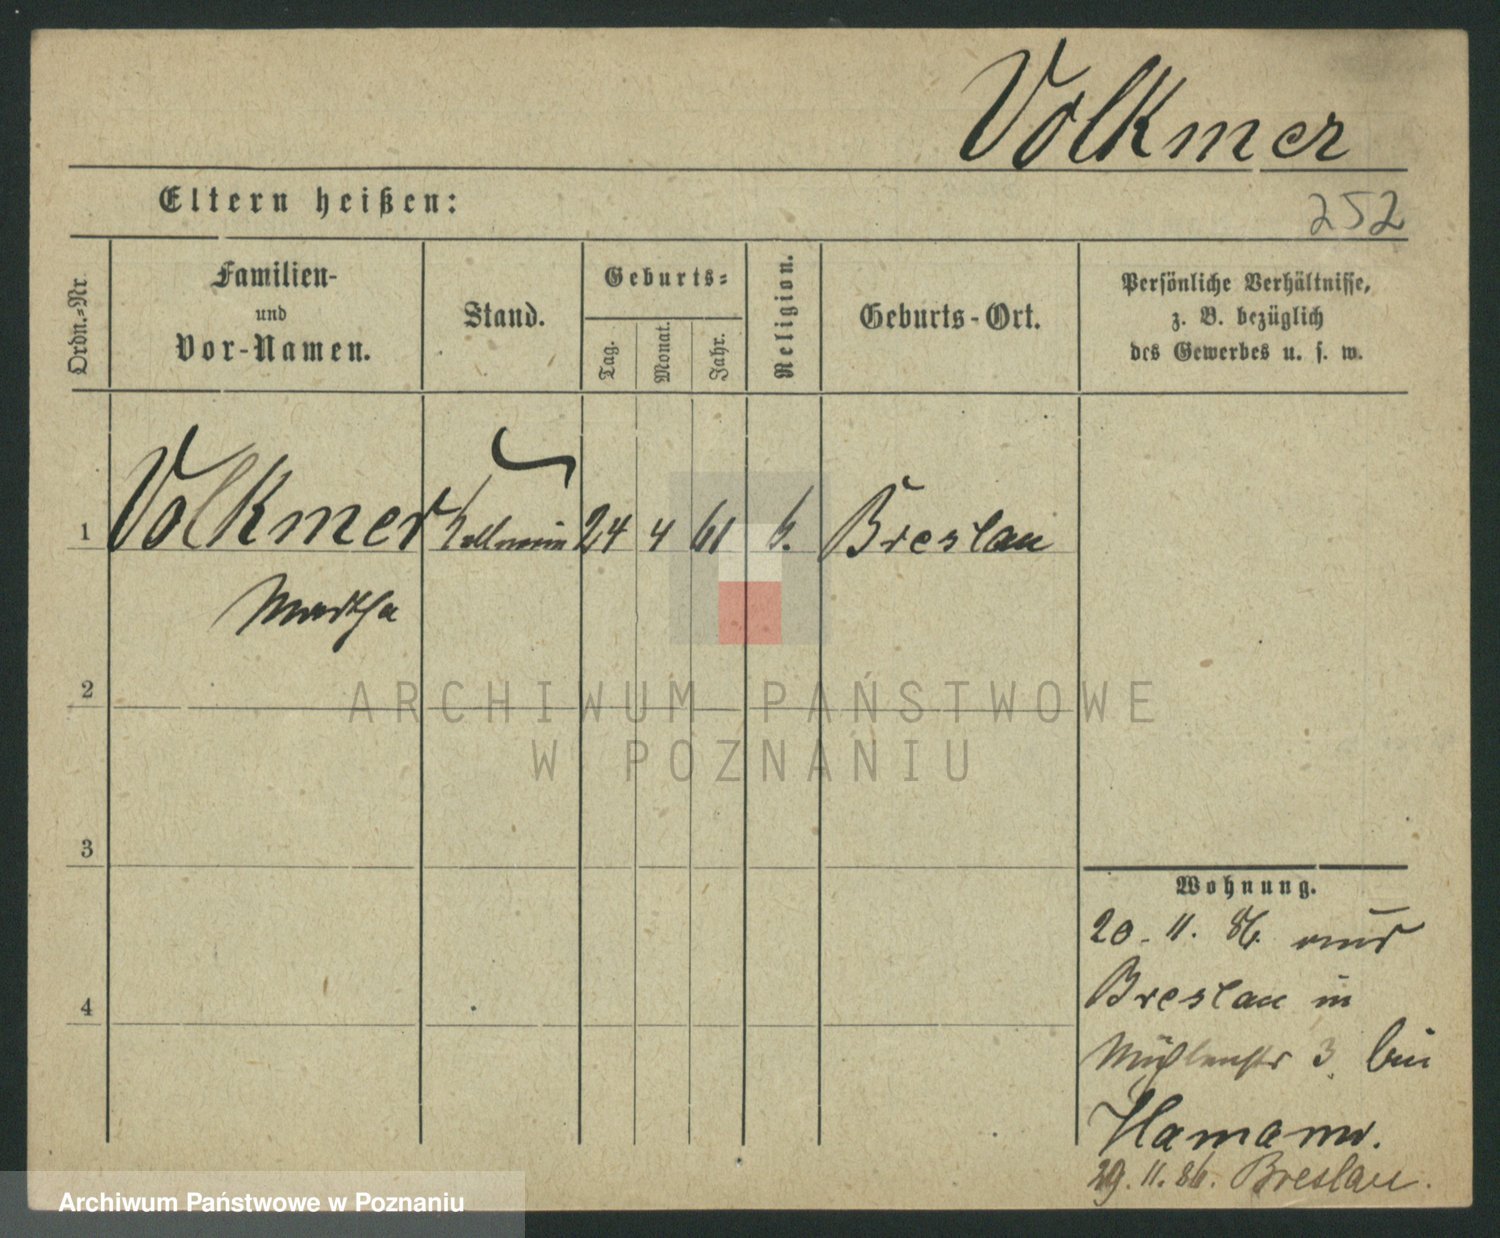 Volkmer
Eltern heißen:
252
Ordn.-Nr.
Familien-
und
Vor-Namen.
Stand.
Geburts-
Tag.
Monat.
Jahr.
Religion.
Geburts-Ort.
Persönliche Verhältnisse,
z. B. bezüglich
des Gewerbes u. s. w.
1 Volkmer Kellnerin 24 4 61 k. Breslau
Martha
2
ARCHIWUM PAŃSTWOWE
W POZNANIU
3
4
Wohnung.
20. 11. 86. aus
Breslau in
Mühlenstr 3 bei
Hamann.
29. 11. 86. Breslau.
Archiwum Państwowe w Poznaniu